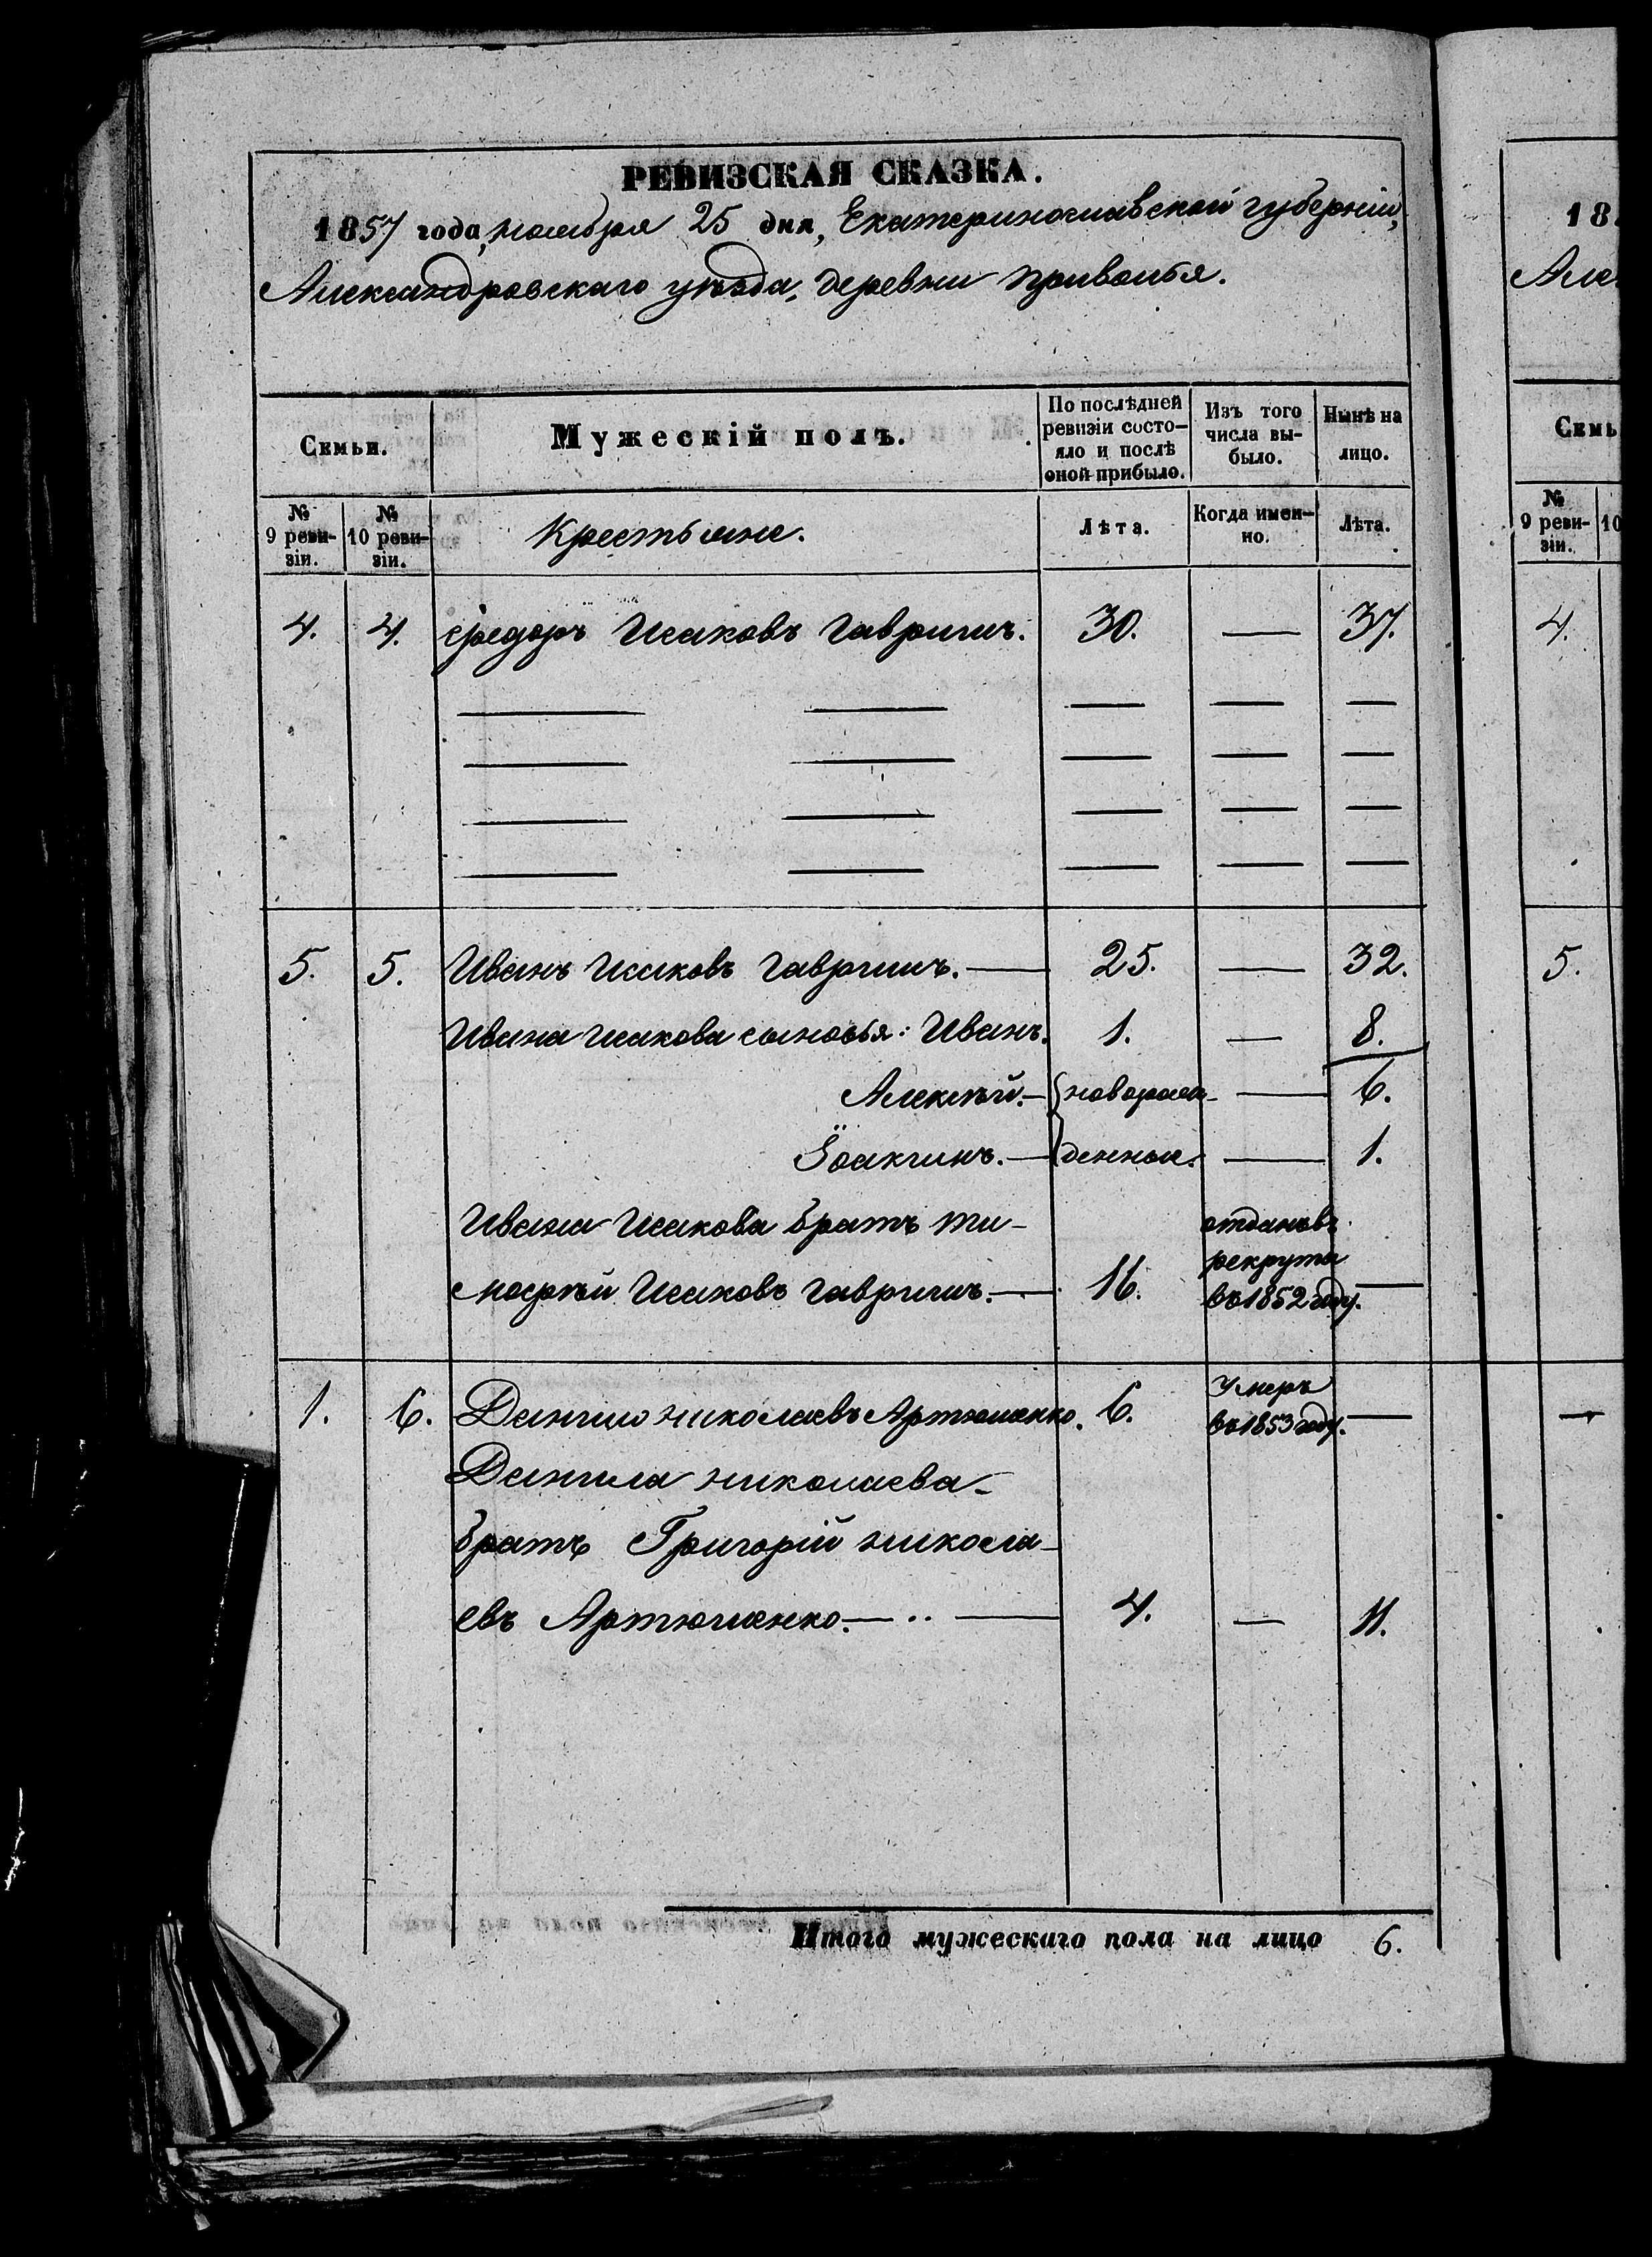 РЕВИЗСКАЯ СКАЗКА.
1857 года, ноября 25 дня, Екатеринославской губерніи,
Александровскаго уѣзда, деревни Приволья.
Семьи.
Мужескій полъ.
По послѣдней ревизіи состояло и послѣ оной прибыло.
Изъ того числа выбыло.
Нынѣ на лицо.
№ 9 ревизіи.
№ 10 ревизіи.
Крестьяне.
Лѣта.
Когда именно.
Лѣта.
4. 4. Федоръ Исаковъ Гавришъ. 30. — 37.
5. 5. Иванъ Исаковъ Гавришъ. — 25. — 32.
Ивана Исакова сыновья: Иванъ. 1. — 8.
Алексѣй. — новорож- — 6.
Іоакимъ. — денные. — 1.
Ивана Исакова братъ Ти-
мофѣй Исаковъ Гавришъ. — 16. отданъ въ рекруты въ 1852 году. —
1. 6. Данило Николаевъ Артюменко. 6. умеръ въ 1853 году. —
Данила Николаева
братъ Григорій Никола-
евъ Артюменко. — 4. — 11.
Итого мужескаго пола на лицо 6.
18
Але
Семь
№ 9 ревизіи.
10
4.
5.
—